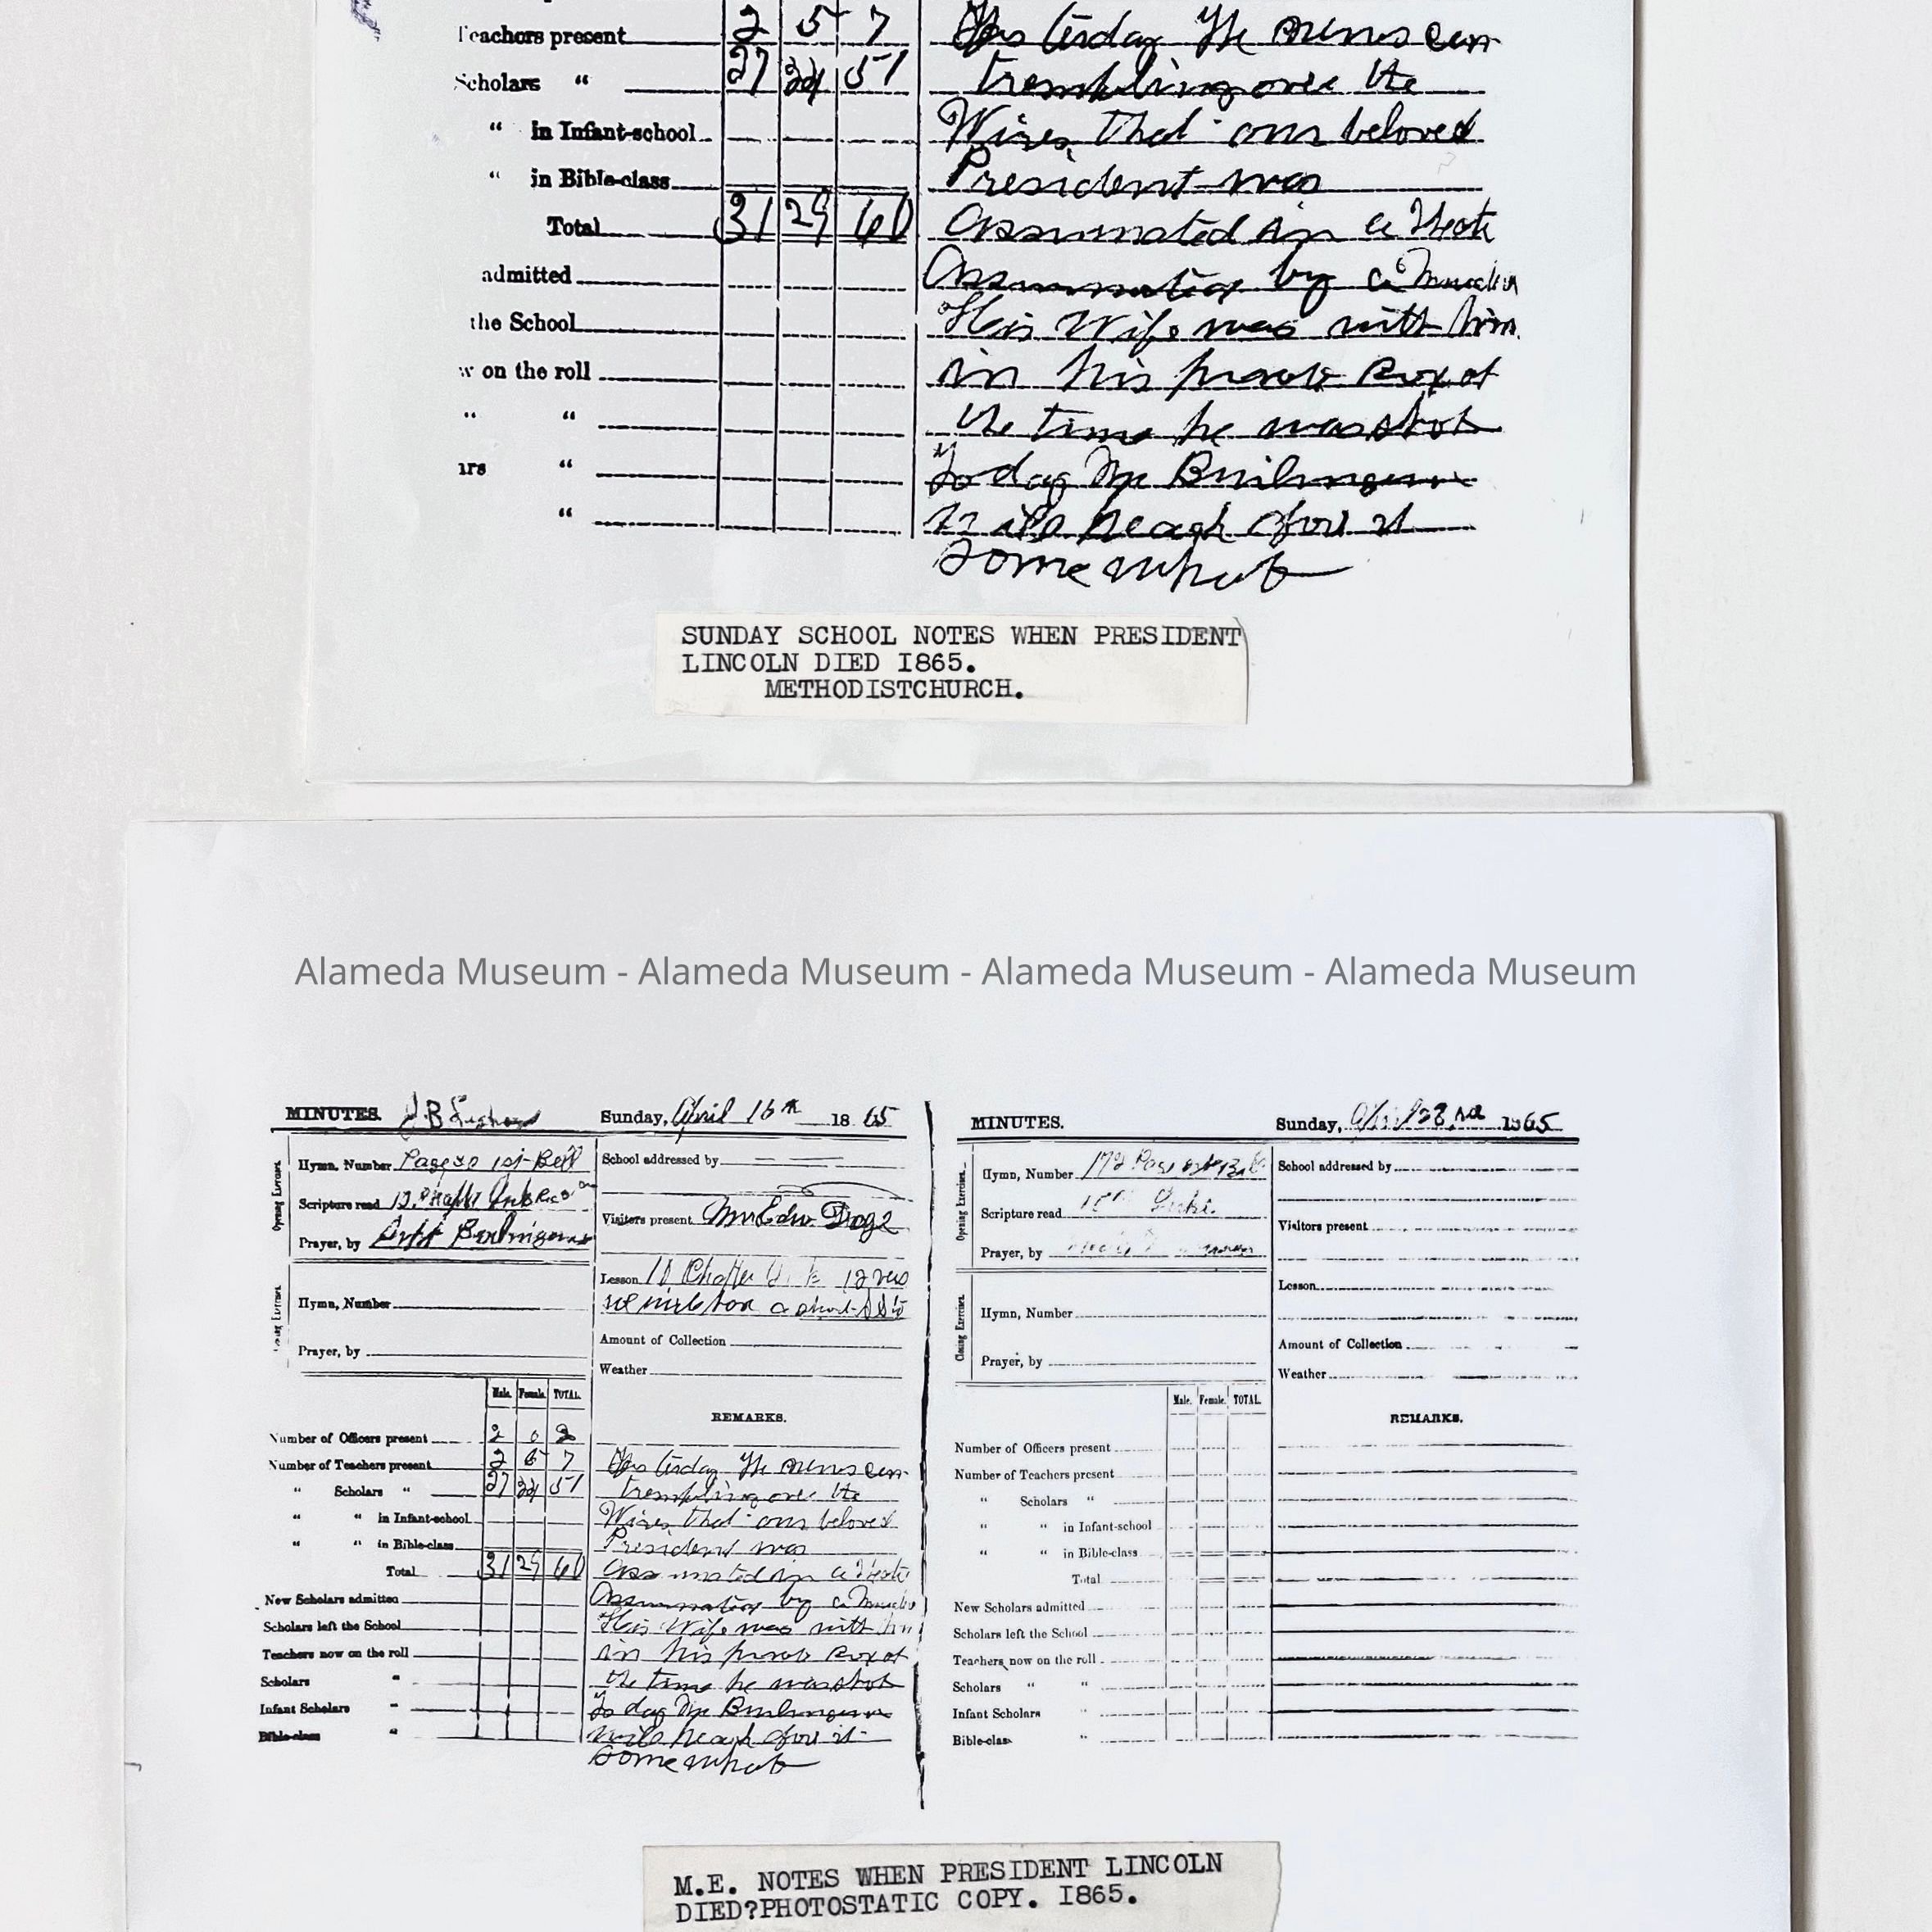 Teachers present 2 5 7 Yesterday The news came
Scholars “ 27 24 51 trembling over the
“ in Infant-school Wires, that our beloved
“ in Bible-class President was
Total 31 29 60 Assassinated in a
admitted by a
the School His Wife was with him
on the roll in his private Box at
“ “ the time he was shot
“ To day Mr
“
somewhat
SUNDAY SCHOOL NOTES WHEN PRESIDENT
LINCOLN DIED I865.
METHODISTCHURCH.
Alameda Museum - Alameda Museum - Alameda Museum - Alameda Museum
MINUTES. J.B. Sunday, April 16th 1865
Hymn, Number Page 30 1st Bell
Scripture read
Prayer, by
Hymn, Number
Prayer, by
School addressed by
Visitors present Mr Edw
Lesson 12
Amount of Collection
Weather
Male. Female. TOTAL.
REMARKS.
Number of Officers present 2 0 2
Number of Teachers present 2 5 7 Yesterday The news came
“ Scholars “ 27 24 51 trembling over the
“ “ in Infant-school Wires, that our beloved
“ “ in Bible-class President was
Total 31 29 60 Assassinated in a
New Scholars admitted by a
Scholars left the School His Wife was with him
Teachers now on the roll in his private Box at
Scholars “ the time he was shot
Infant Scholars “ To day Mr
Bible-class “
somewhat
MINUTES. Sunday, April 23rd 1865
Opening Exercises.
Hymn, Number 172
Scripture read
Prayer, by
Closing Exercises.
Hymn, Number
Prayer, by
School addressed by
Visitors present
Lesson
Amount of Collection
Weather
Male. Female. TOTAL.
REMARKS.
Number of Officers present
Number of Teachers present
“ Scholars “
“ “ in Infant-school
“ “ in Bible-class
Total
New Scholars admitted
Scholars left the School
Teachers now on the roll
Scholars “ “
Infant Scholars “
Bible-class “
M.E. NOTES WHEN PRESIDENT LINCOLN
DIED?PHOTOSTATIC COPY. I865.